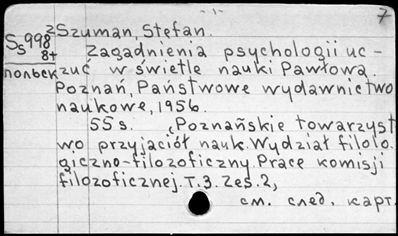 7
S 998
s 8+
польск
2Szuman, Stefan.
Zagadnienia psychologii uc-
zuć w świetle nauki Pawłowa.
Poznań, Państwowe wydawnictwo
naukowe, 1956.
55s. (Poznańskie towarzyst
wo przyjaciół nauk. Wydział filolo-
giczno-filozoficzny. Prace komisji
filozoficznej. T.3. Zes. 2,
см. след. карт.